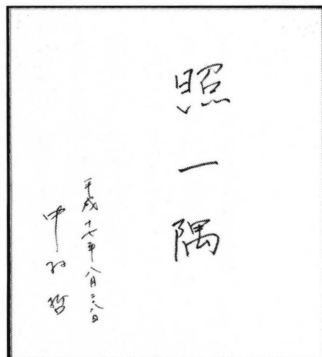 照一隅
平成十七年八月二八日
中村哲